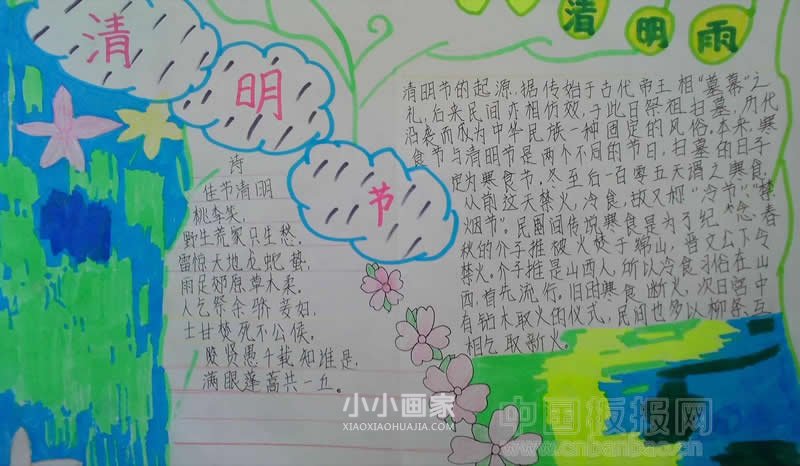 清
明
节
清明雨
诗
佳节清明
桃李笑,
野生荒冢只生愁,
雷惊大地龙蛇蛰,
雨足郊原草木柔。
人乞祭余骄妾妇,
士甘焚死不公侯。
贤愚千载知谁是,
满眼蓬蒿共一丘。
清明节的起源,据传始于古代帝王相"墓幕"之
礼,后来民间亦相仿效,于此日祭祖扫墓,历代
沿袭而成为中华民族一种固定的风俗。本来,寒
食节与清明节是两个不同的节日,扫墓的日子
定为寒食节,冬至后一百零五天谓之寒食,
从前这天禁火,冷食,故又称"冷节""禁
烟节"。民间传说寒食是为了纪念春
秋的介子推被火焚于绵山,晋文公下令
禁火。介子推是山西人,所以冷食习俗在山
西首先流行,旧时寒食断火,次日宫中
有钻木取火的仪式,民间也多以柳条互
相乞取新火。
小小画家
XIAOXIAOHUAJIA.COM
中国板报网
www.cnbanbao.cn